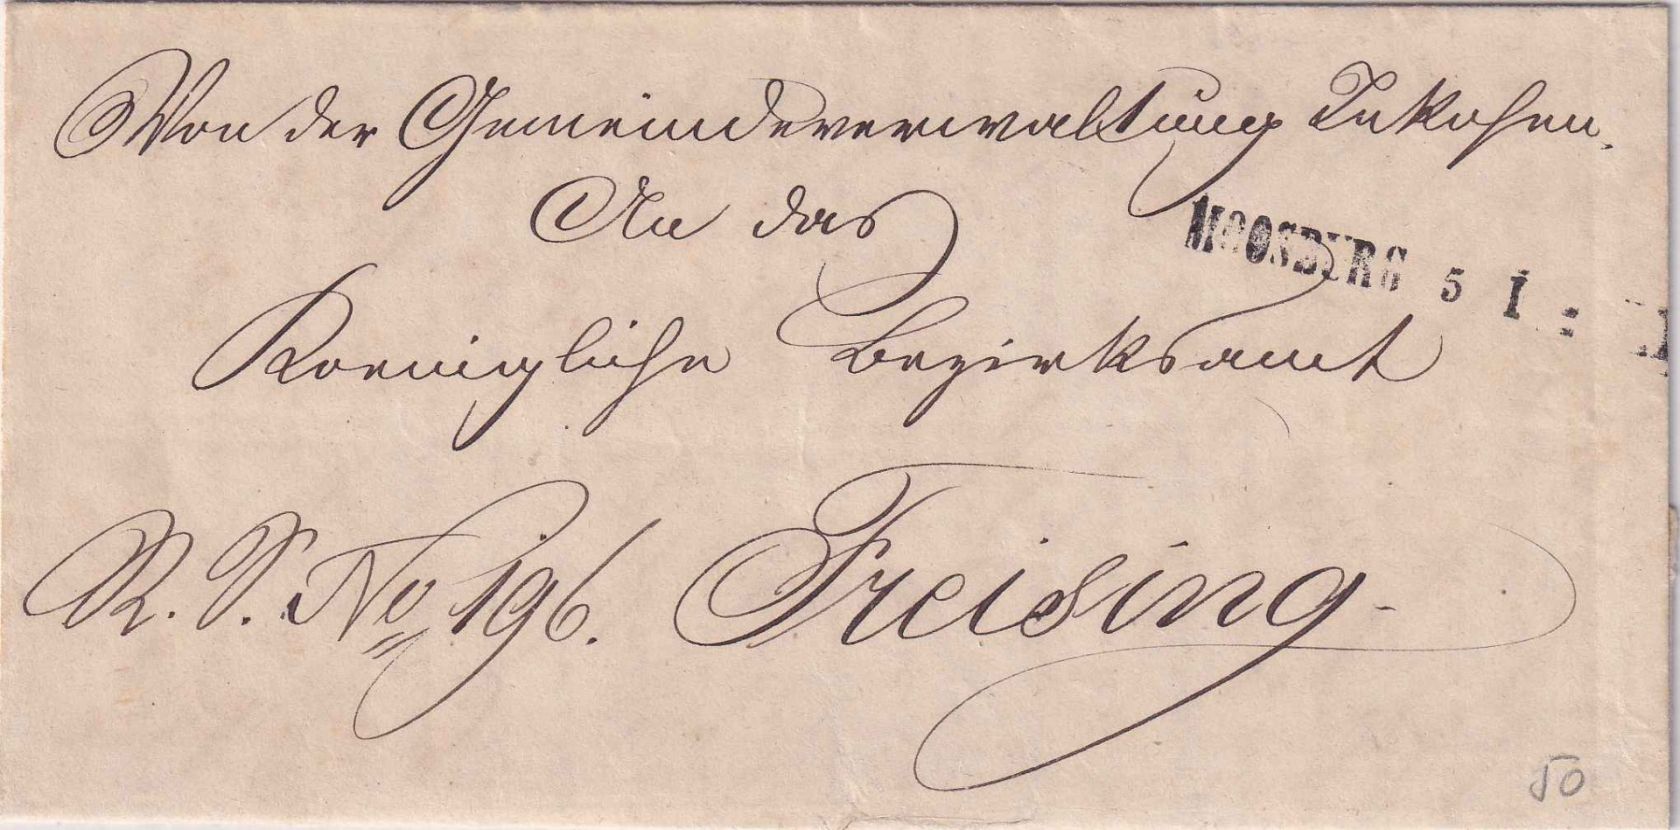 Von der Gemeindeverwaltung Inkofen.
An das
MOOSBURG 5 I
Koenigliche Bezirksamt
R. S. No 196. Freising.
50